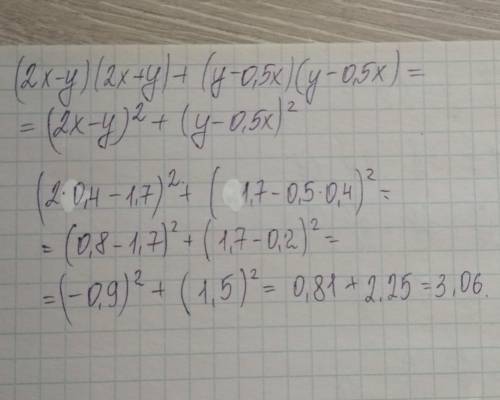 (2x-y)(2x+y)+(y-0,5x)(y-0,5x)=
=(2x-y)²+(y-0,5x)²
(2·0,4-1,7)²+(1,7-0,5·0,4)²=
=(0,8-1,7)²+(1,7-0,2)²=
=(-0,9)²+(1,5)²=0,81+2,25=3,06.